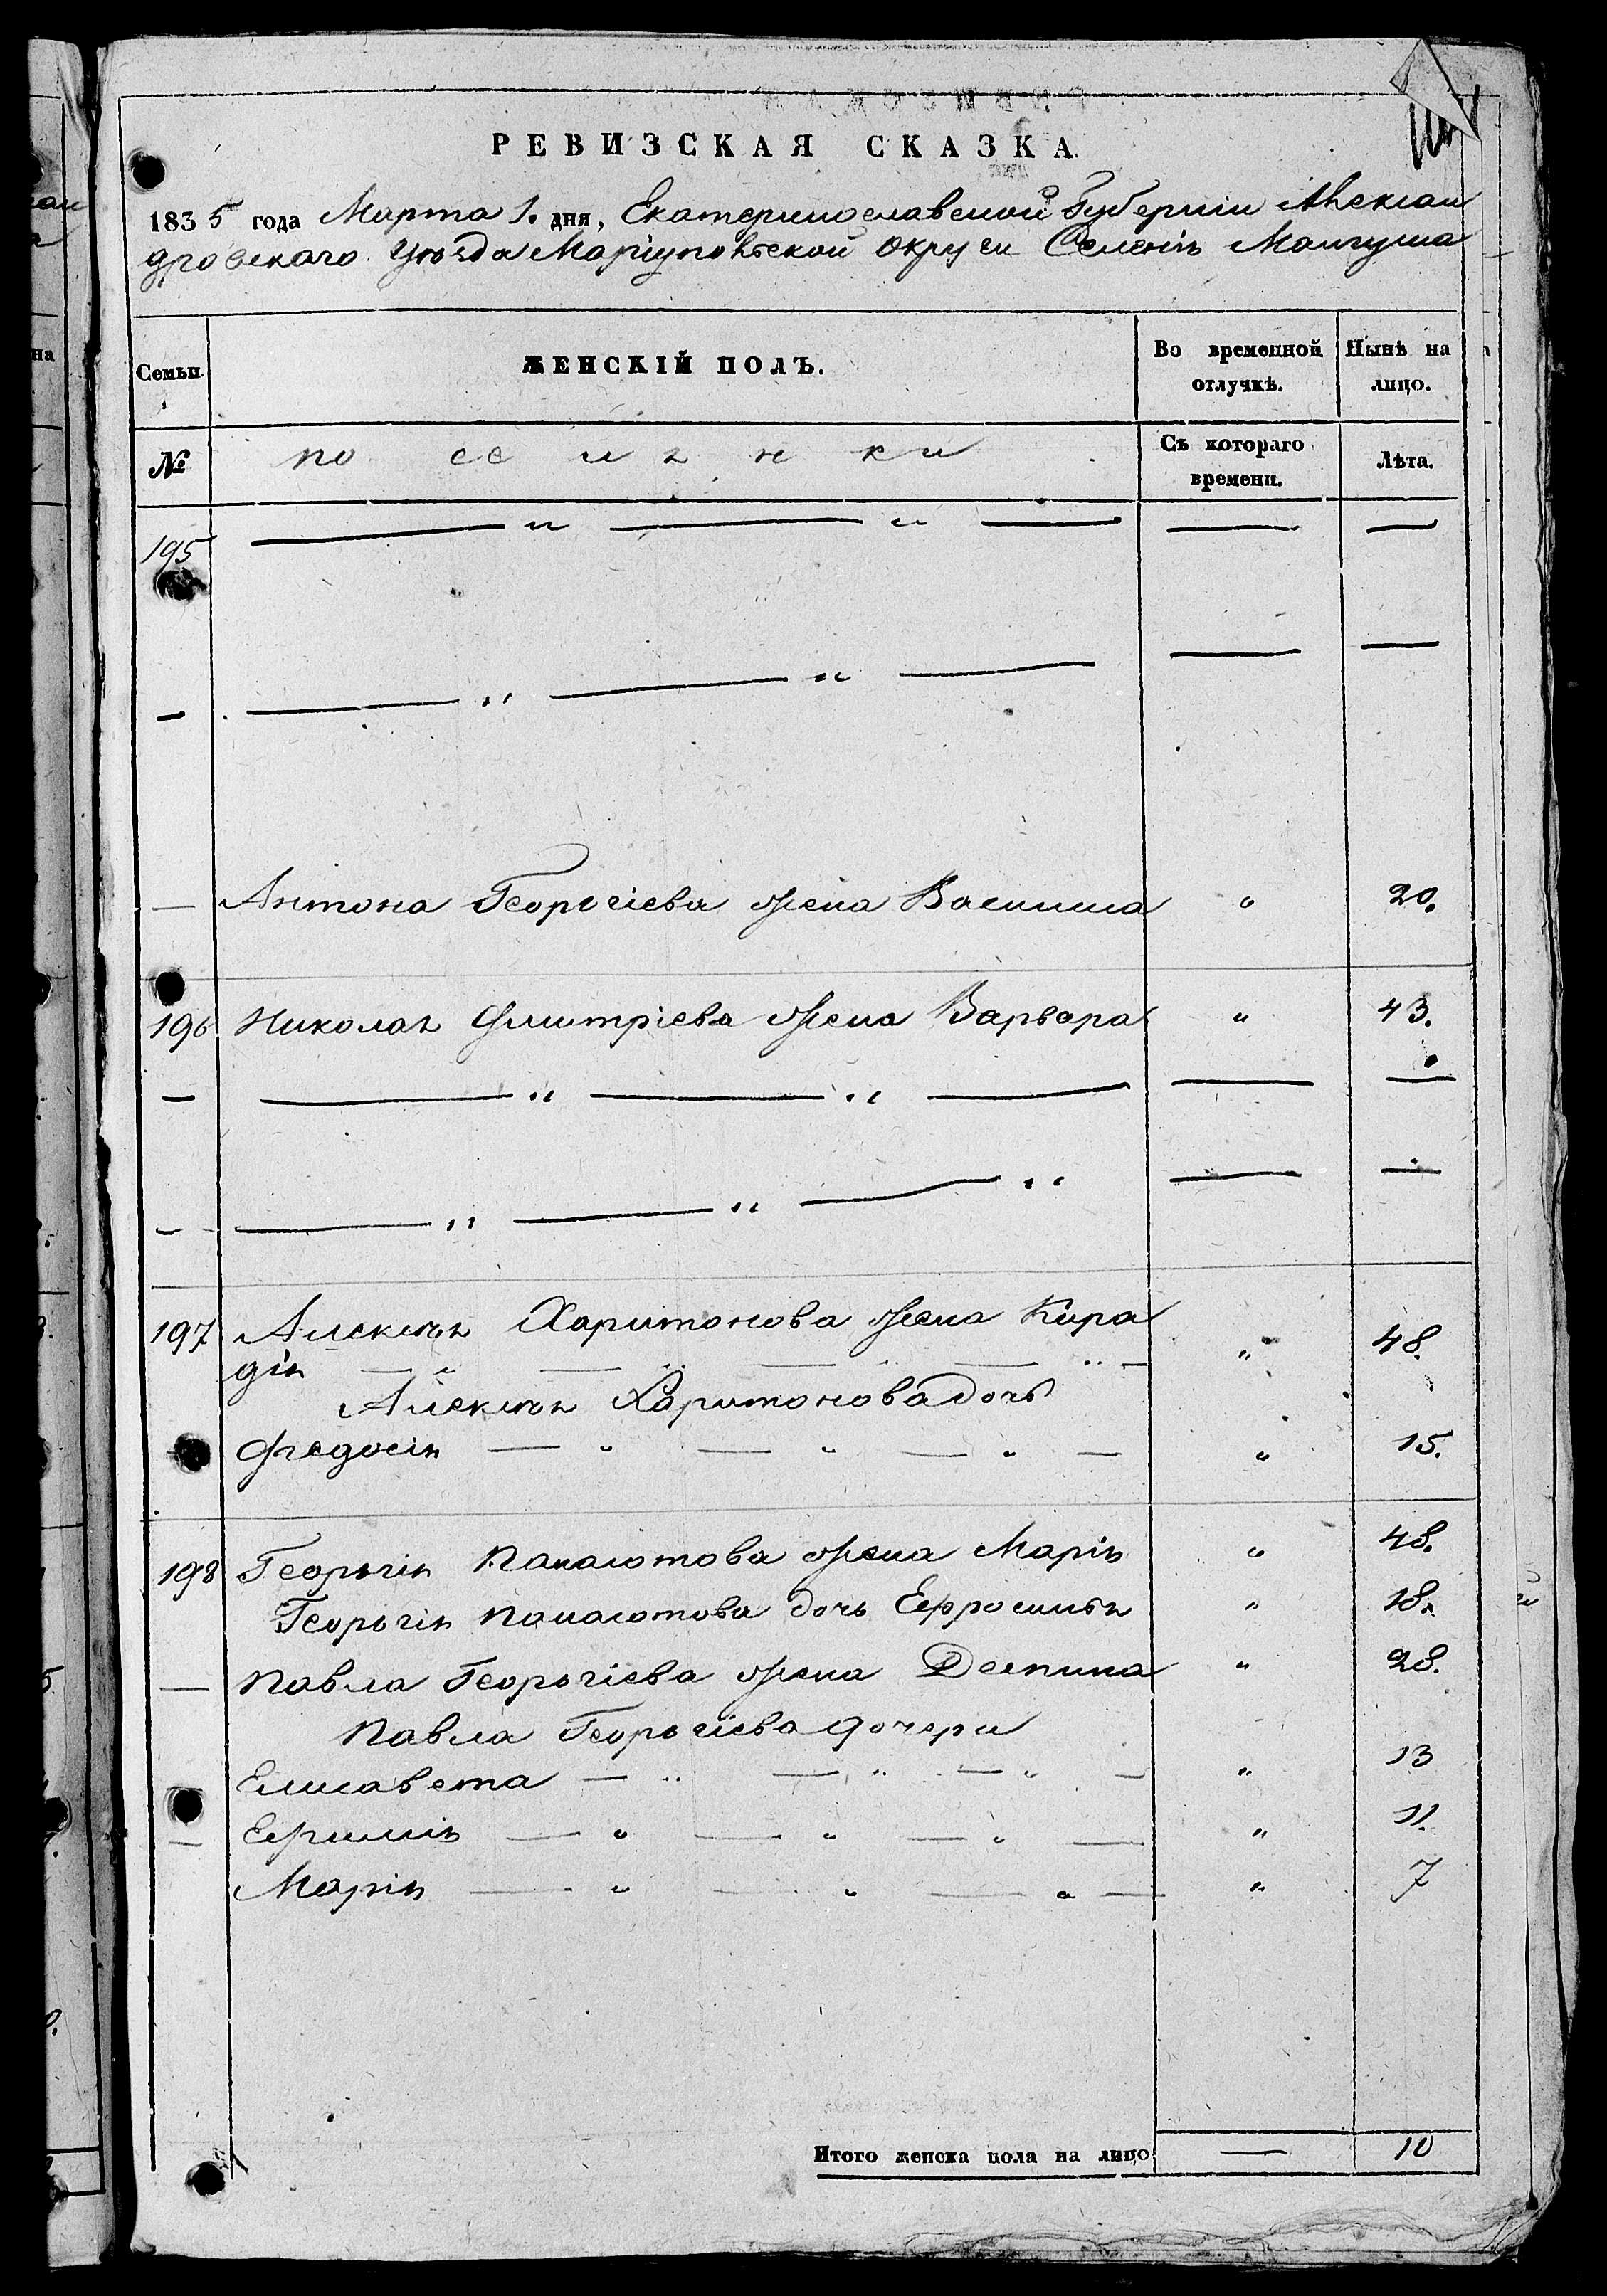 РЕВИЗСКАЯ СКАЗКА.
1835 года Марта 1. дня, Екатеринославской Губернии Алексан
дровского Уѣзда Маріупольской округи Селенія Мангуша
Семьи.
ЖЕНСКІЙ ПОЛЪ.
Во временной отлучкѣ.
Нынѣ на лицо.
№
поселянки
Съ котораго времени.
Лѣта.
195 — „ — „ — — —
— — „ — „ — — —
— Антона Георгіева жена Василиса „ 20.
196 Николая Дмитріева жена Варвара „ 43.
— — „ — „ — — —
— — „ — „ — „ — —
197 Алексѣя Харитонова жена Кира
дія — „ — „ — „ — „ 48.
Алексѣя Харитонова дочь
Федосія — „ — „ — „ — „ 15.
198 Георгія Панаіотова жена Марія „ 48.
Георгія Панаіотова дочь Ефросинія „ 18.
— Павла Георгіева жена Деспина „ 28.
Павла Георгіева дочери
Елисавета — „ — „ — „ — „ 13
— „ — „ — „ — „ 11.
Марія — „ — „ — „ — „ 7
Итого женска пола на лицо — 10